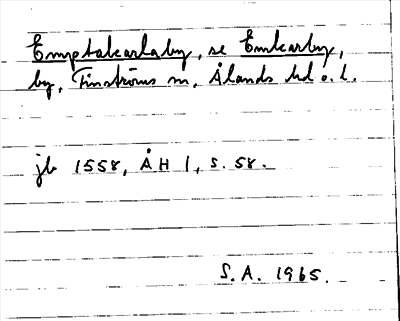 Emptakarlaby, se Emkarby,
by, Finströms sn, Ålands hd o. l.
jb 1558, ÅH 1, s. 58.
S.A. 1965.